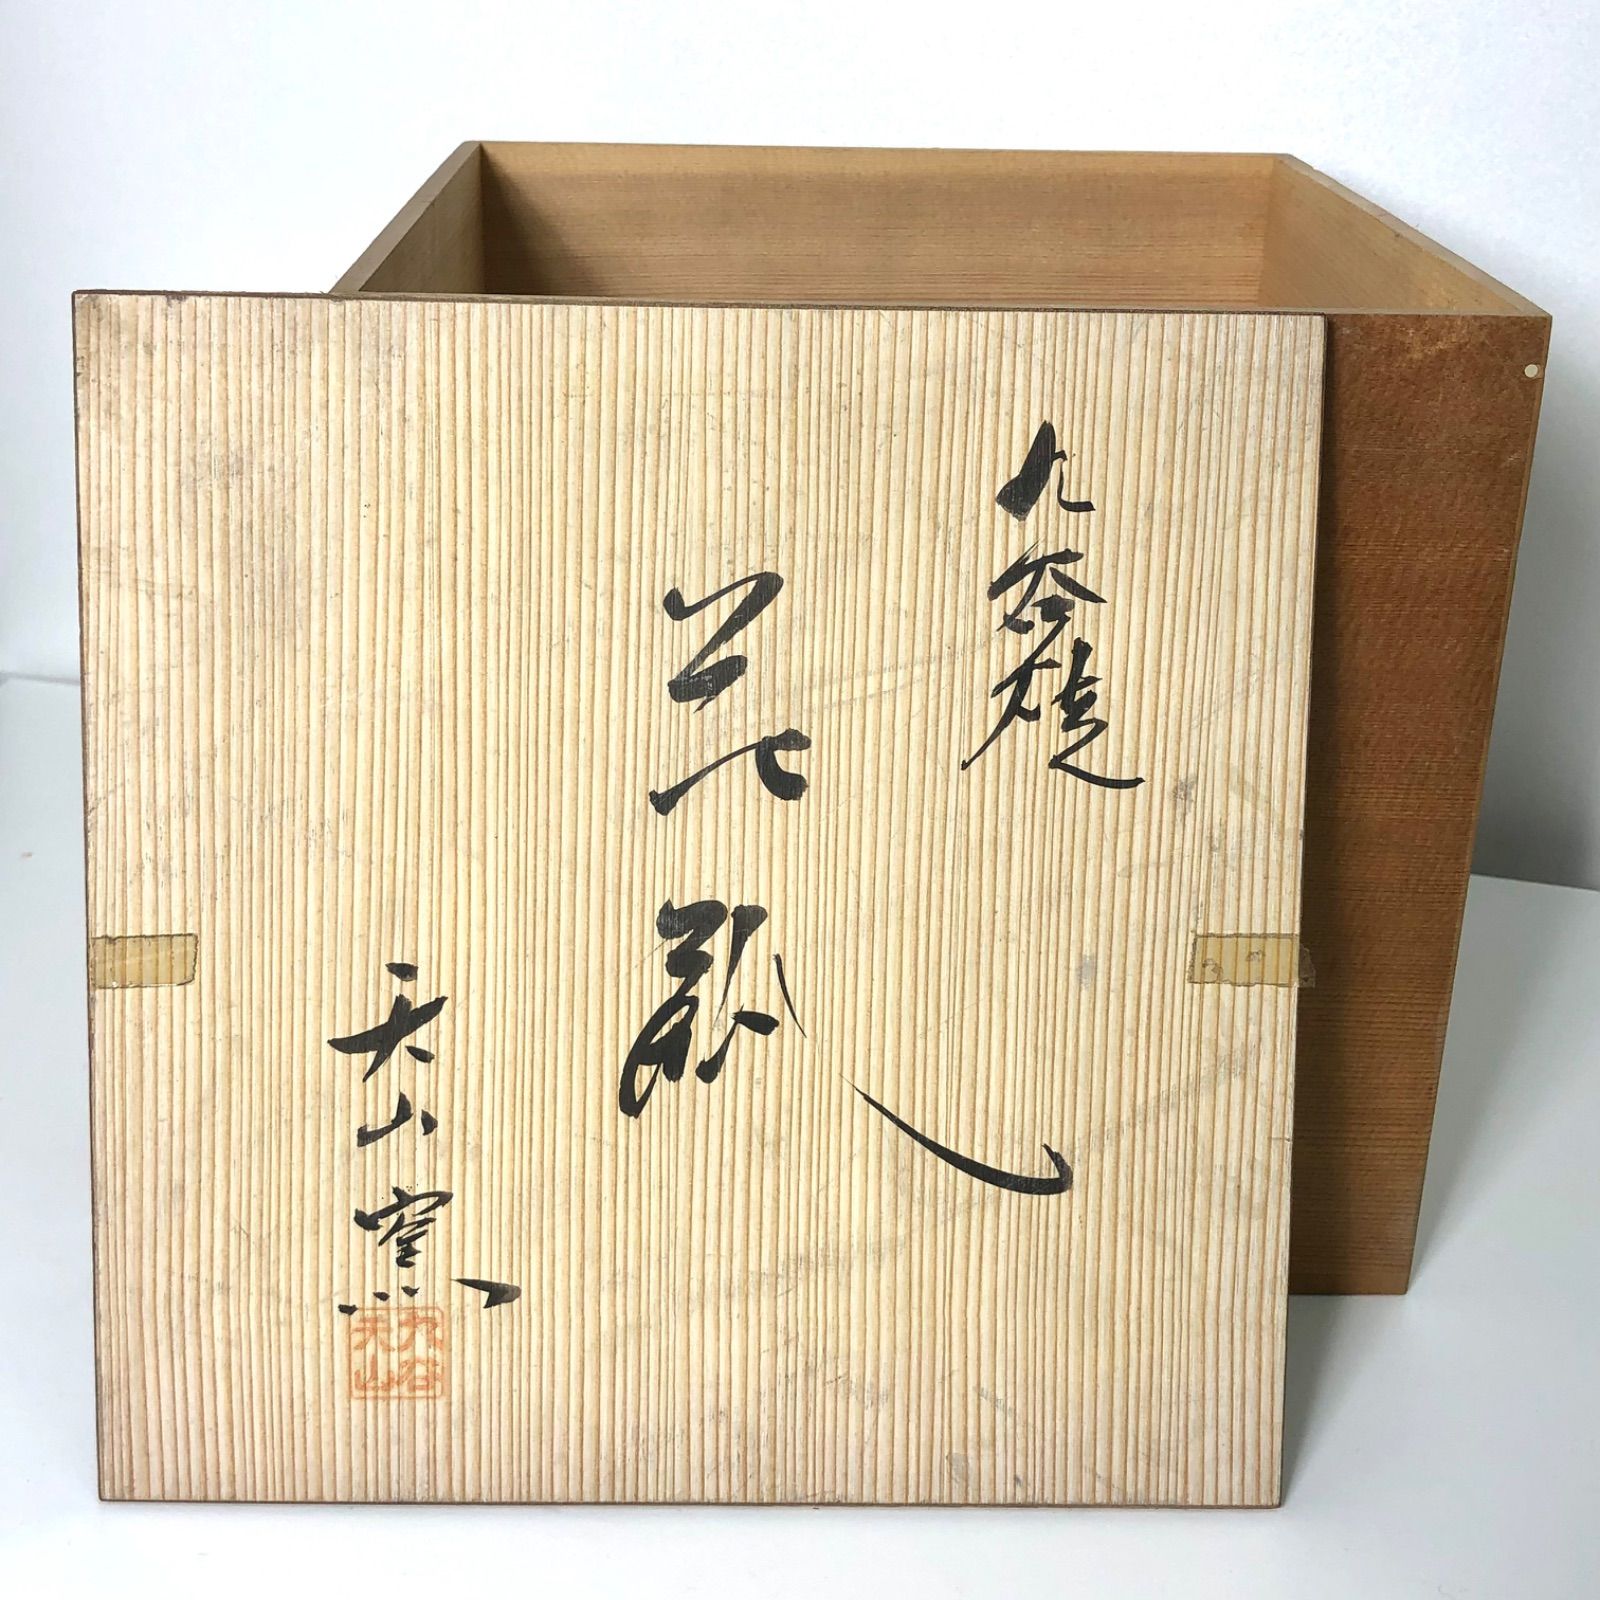 九谷焼
花瓶
天山窯
九谷
天山